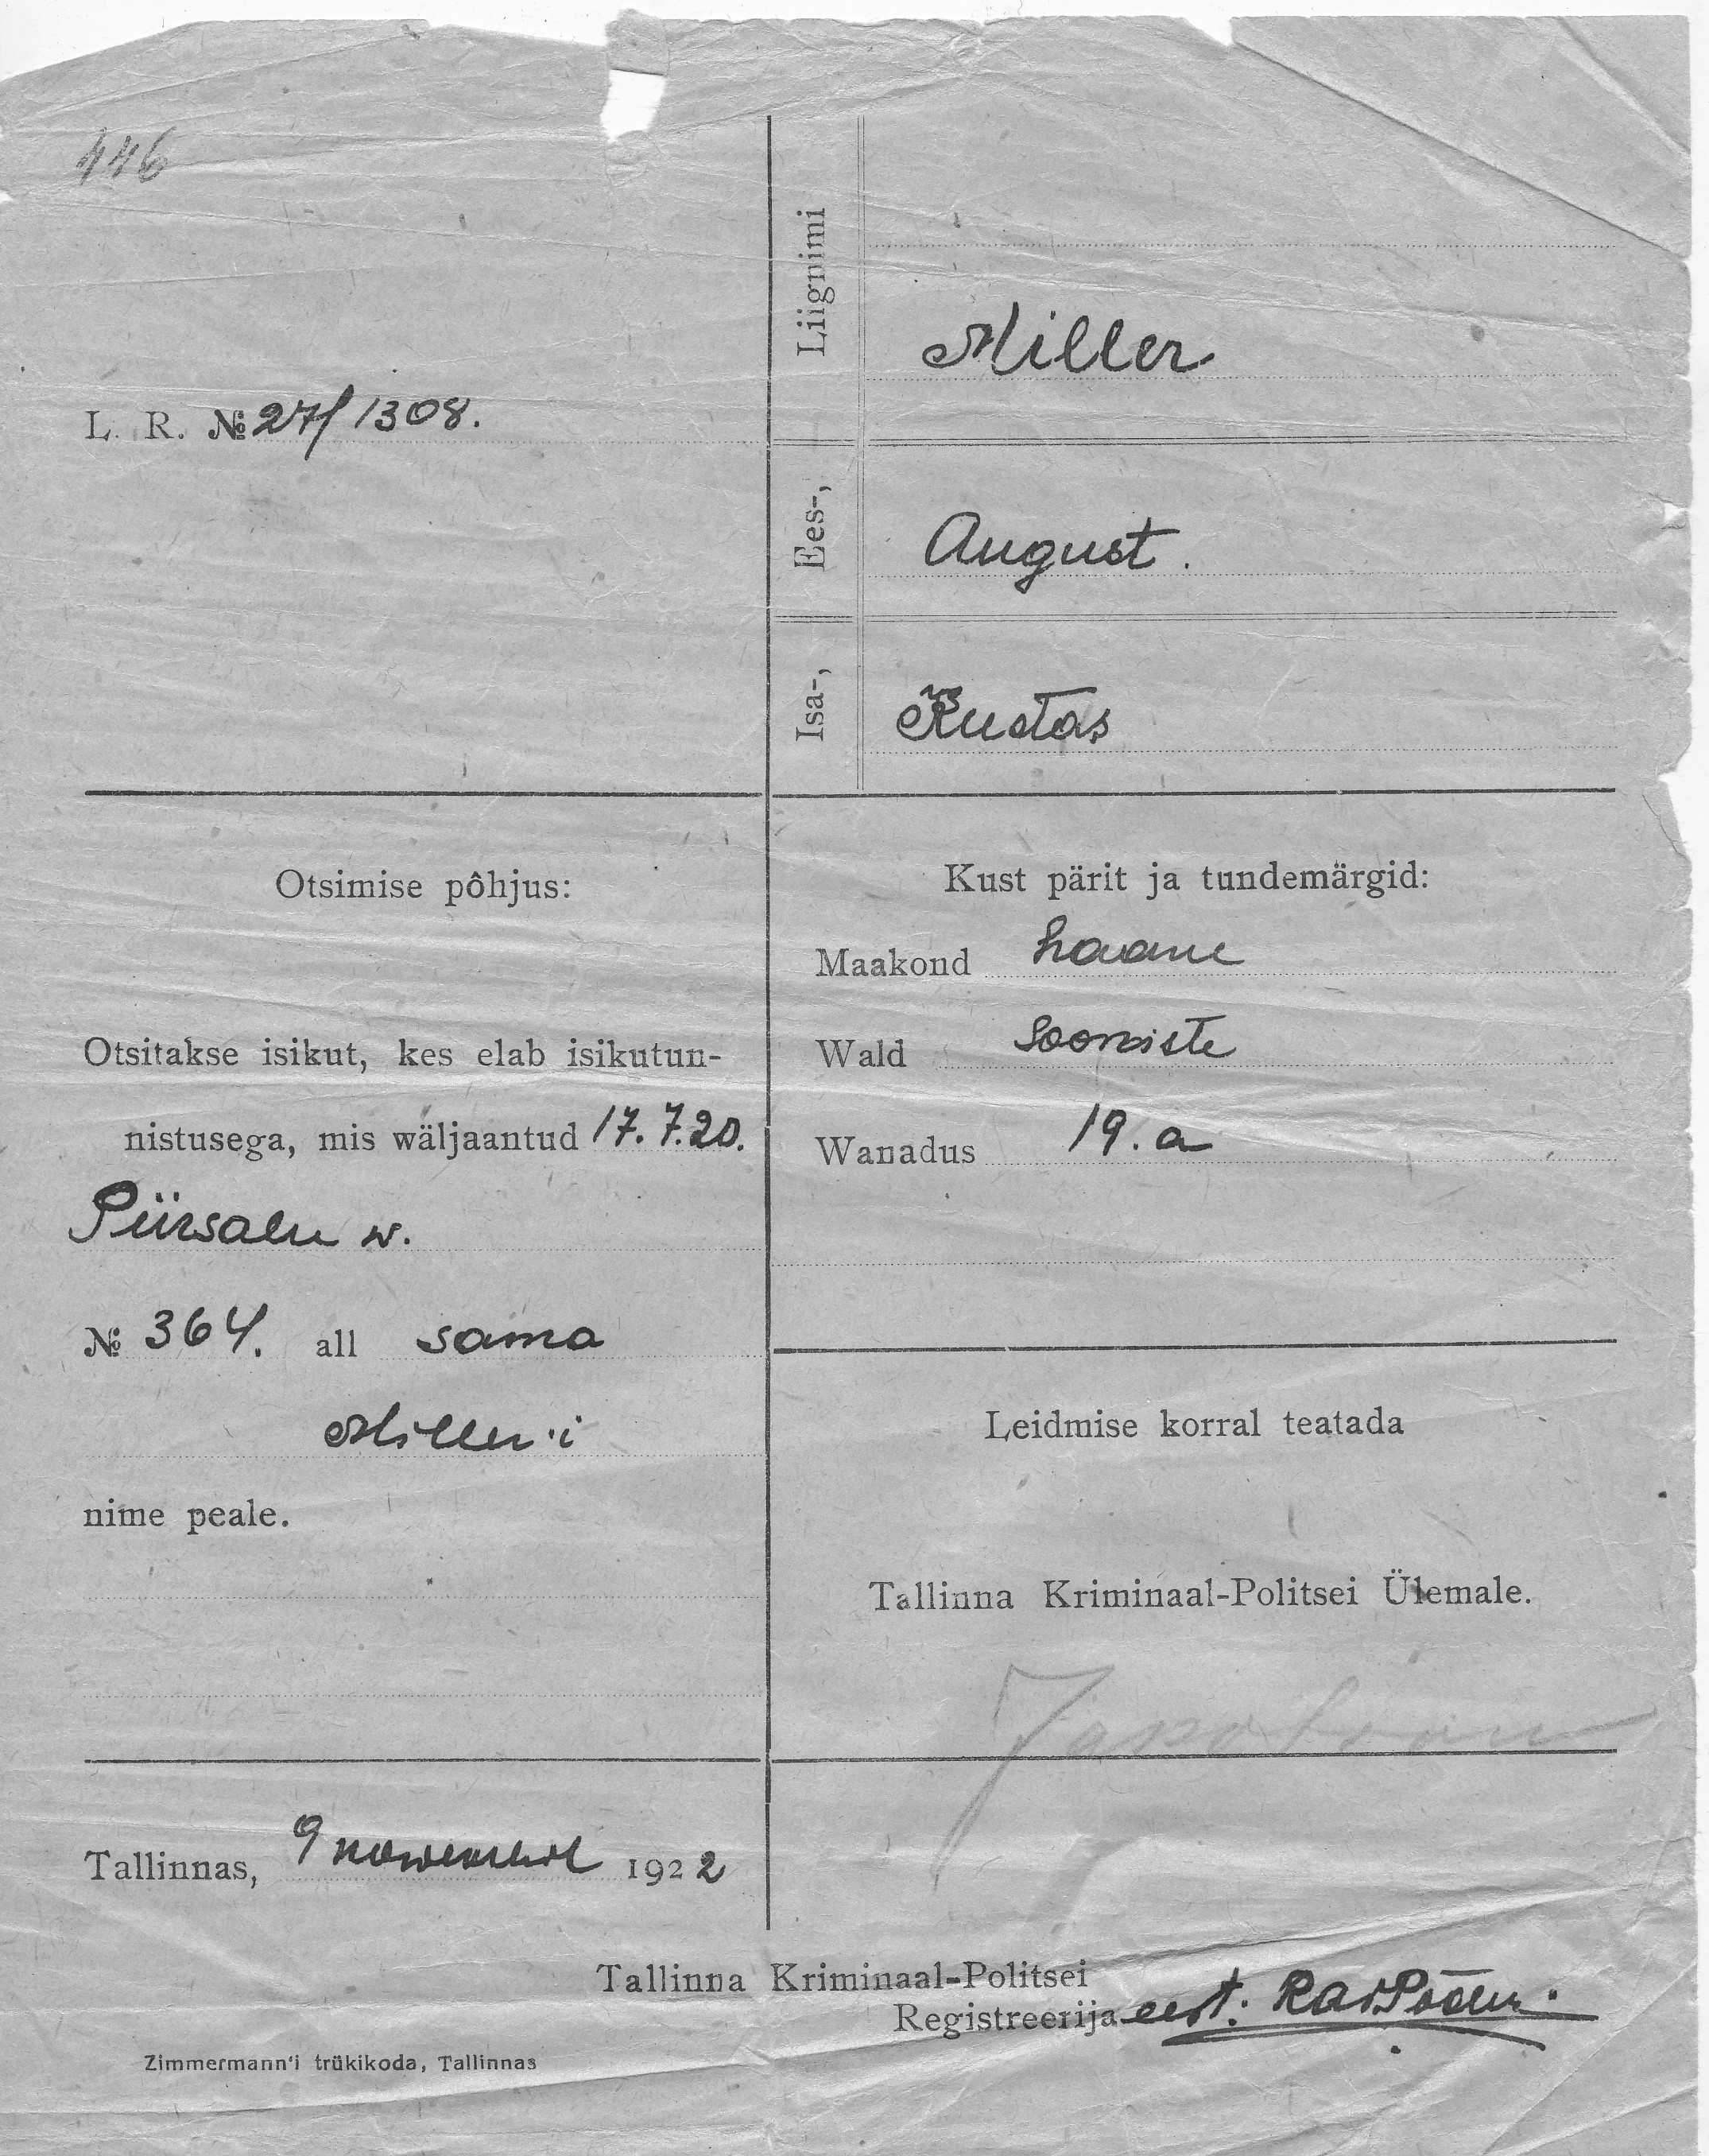 446
L. R. № 27/1308.
Liignimi
Miller
Ees-,
August.
Isa-,
Kustas
Otsimise pôhjus:
Otsitakse isikut, kes elab isikutun-
nistusega, mis wäljaantud 17.7.20.
Piirsalu w.
№ 364. all sama
Miller'i
nime peale.
Kust pärit ja tundemärgid:
Maakond Lääne
Wald Sooniste
Wanadus 19. a
Leidmise korral teatada
Tallinna Kriminaal-Politsei Ülemale.
Tallinnas, 9 novembril 1922
Tallinna Kriminaal-Politsei
Registreerija eest:
Zimmermann'i trükikoda, Tallinnas